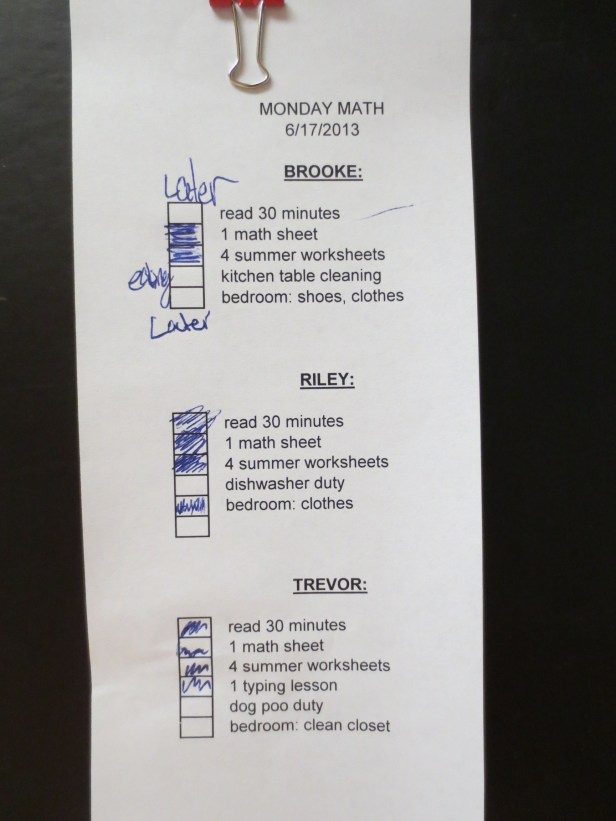 MONDAY MATH
6/17/2013
BROOKE:
Later
read 30 minutes
1 math sheet
4 summer worksheets
kitchen table cleaning
bedroom: shoes, clothes
Later
RILEY:
read 30 minutes
1 math sheet
4 summer worksheets
dishwasher duty
bedroom: clothes
TREVOR:
read 30 minutes
1 math sheet
4 summer worksheets
1 typing lesson
dog poo duty
bedroom: clean closet